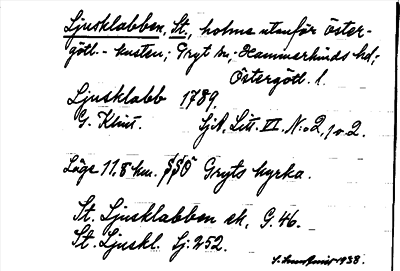 Ljusklabben, St., holme utanför Öster-
götl.-kusten; Gryt sn; Hammarkinds hd;
Östergötl. l.
Ljusklabb 1789.
G. Klint. SjA, Litt. VI. N:o 2, 1 o. 2.
Läge 11,8 km. SSO Gryts kyrka.
St. Ljusklabben ek. G. 46.
St. Ljuskl. Sj. 252.
1938.